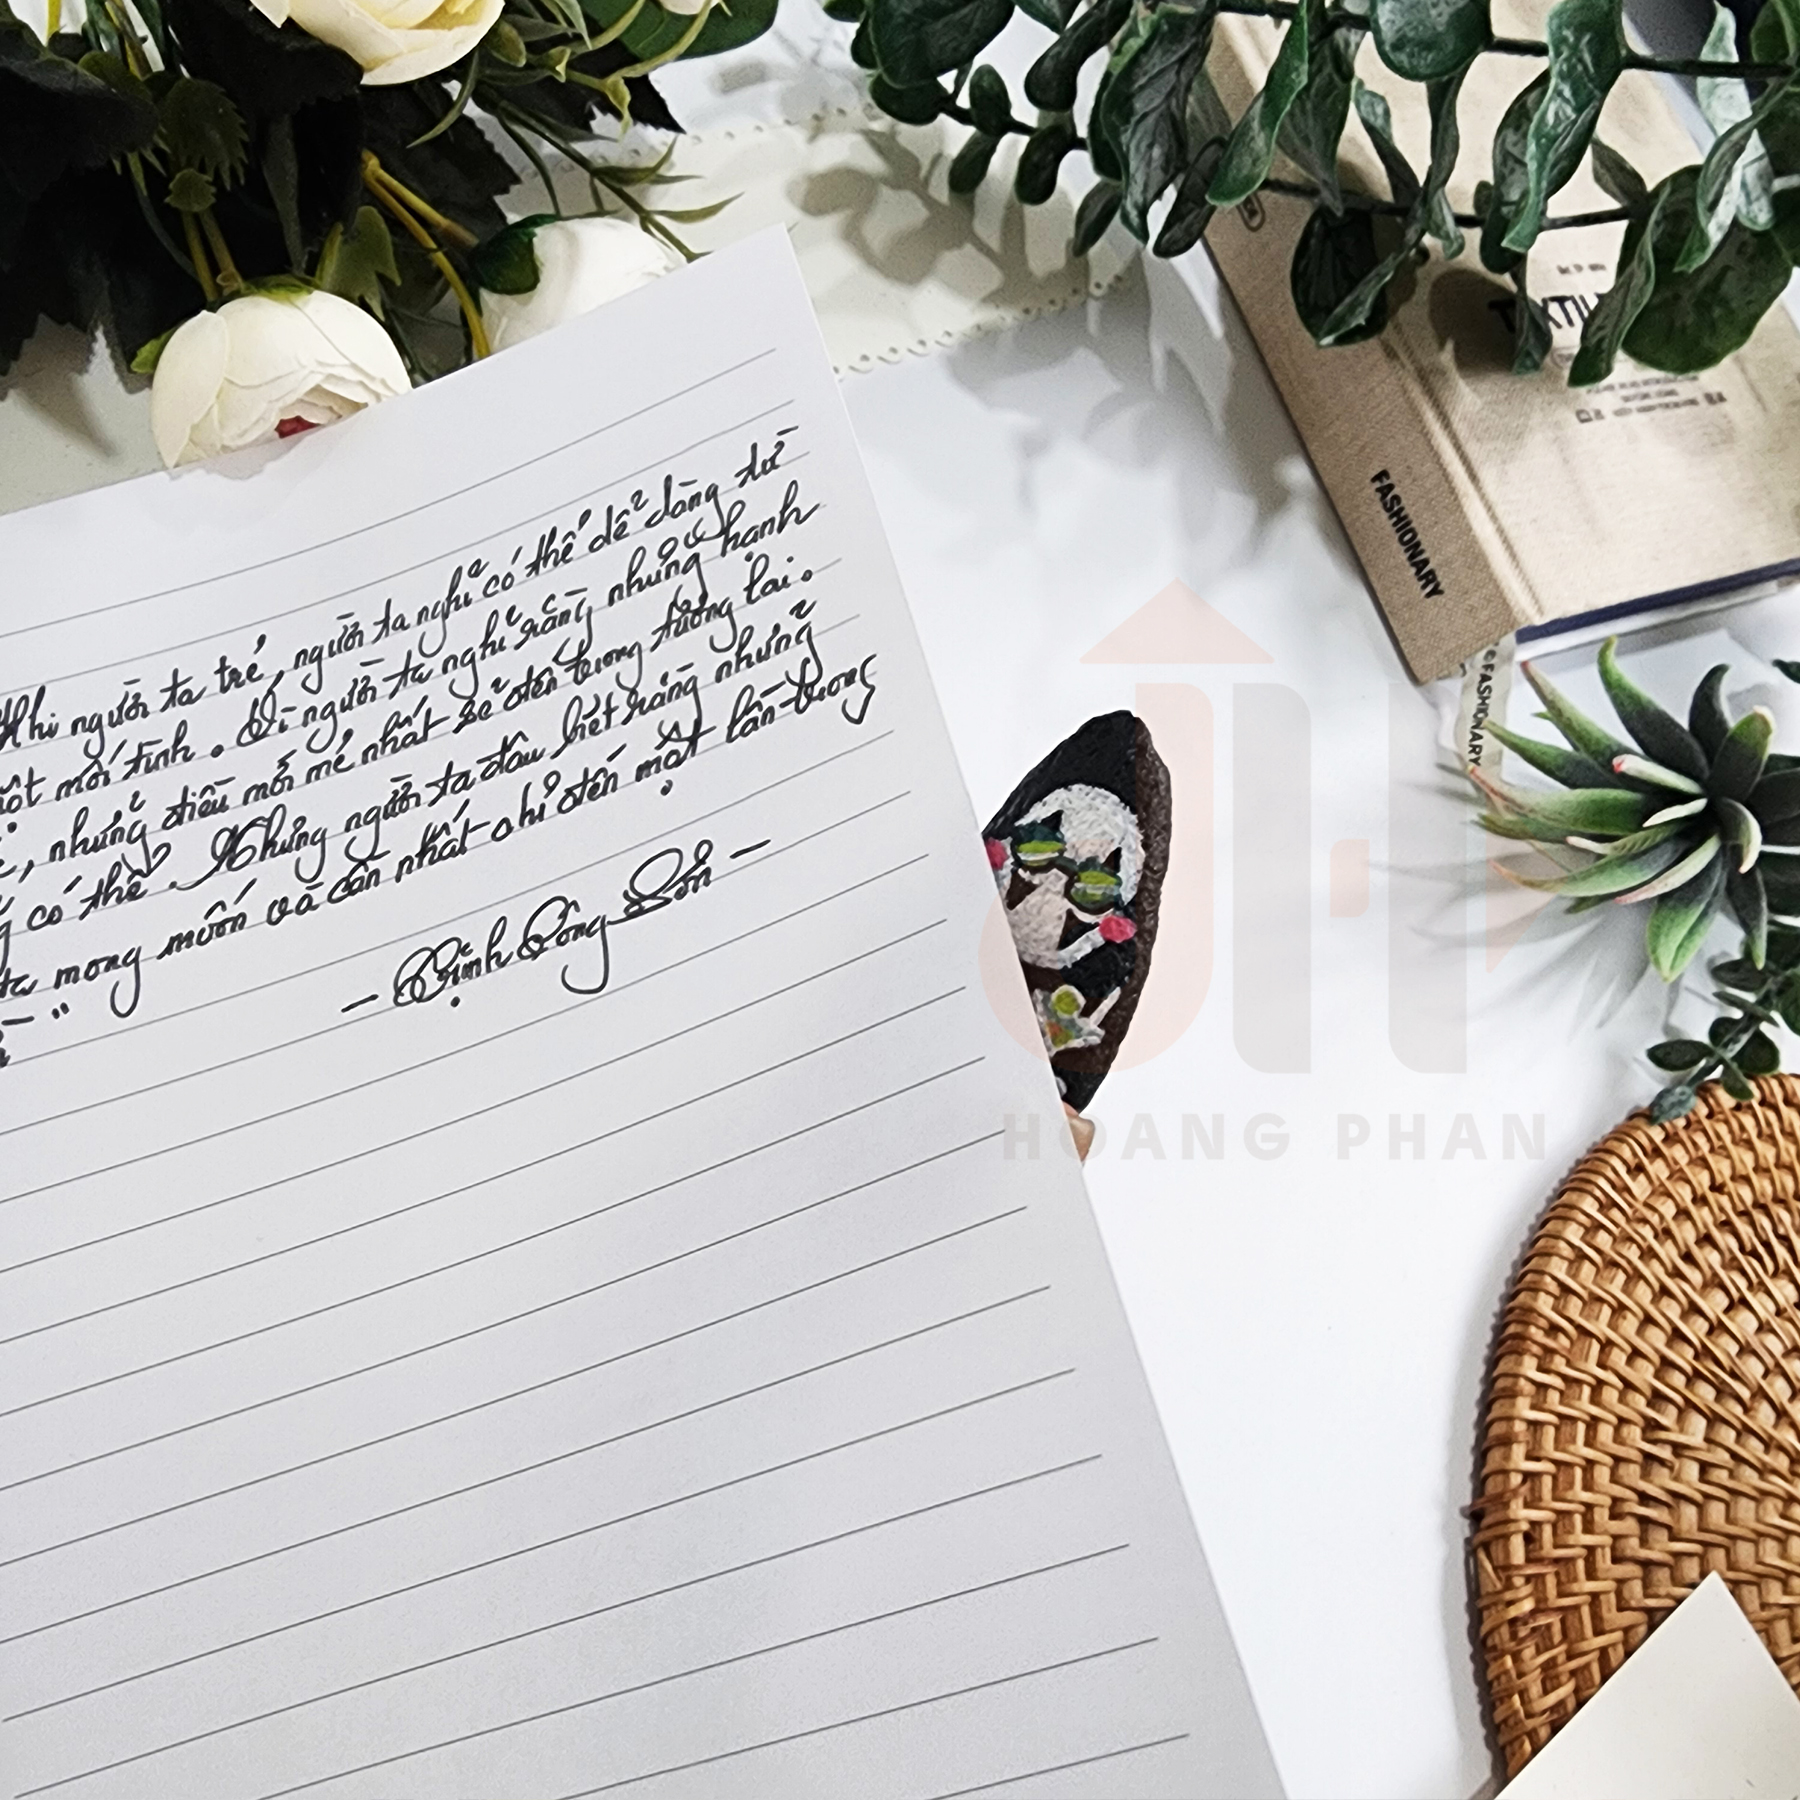 Khi người ta trẻ, người ta nghĩ có thể dễ dàng từ
một mối tình. Vì người ta nghĩ rằng những hạnh
, những điều mới mẻ nhất sẽ đến trong tương lai.
có thể. Nhưng người ta đâu biết rằng những
ta mong muốn và cần nhất chỉ đến một lần trong
"
- Trịnh Công Sơn -
TEXTIL
FASHIONARY
©FASHIONARY
JH
HOANG PHAN